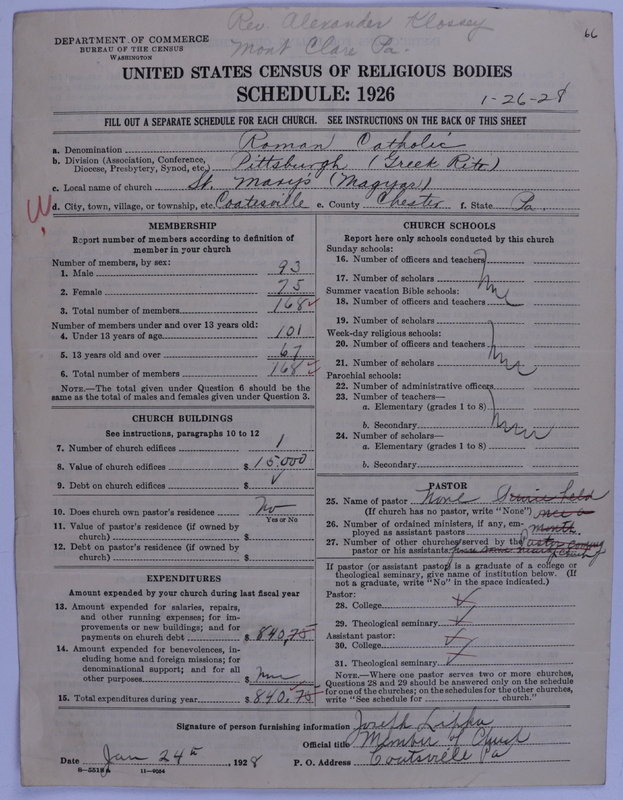 Rev. Alexander Klossey
Mont Clare Pa.
66
DEPARTMENT OF COMMERCE
BUREAU OF THE CENSUS
WASHINGTON
UNITED STATES CENSUS OF RELIGIOUS BODIES
SCHEDULE: 1926
1-26-28
FILL OUT A SEPARATE SCHEDULE FOR EACH CHURCH. SEE INSTRUCTIONS ON THE BACK OF THIS SHEET
a. Denomination Roman Catholic
b. Division (Association, Conference, Diocese, Presbytery, Synod, etc.) Pittsburgh (Greek Rite)
c. Local name of church St. Marys (Magyar)
d. City, town, village, or township, etc. Coatesville e. County Chester f. State Pa.
MEMBERSHIP
Report number of members according to definition of member in your church
Number of members, by sex:
1. Male 93
2. Female 75
3. Total number of members 168
Number of members under and over 13 years old:
4. Under 13 years of age 101
5. 13 years old and over 67
6. Total number of members 168
NOTE.—The total given under Question 6 should be the same as the total of males and females given under Question 3.
CHURCH BUILDINGS
See instructions, paragraphs 10 to 12
7. Number of church edifices 1
8. Value of church edifices $ 15.000
9. Debt on church edifices $
10. Does church own pastor's residence No
Yes or No
11. Value of pastor's residence (if owned by church) $
12. Debt on pastor's residence (if owned by church) $
EXPENDITURES
Amount expended by your church during last fiscal year
13. Amount expended for salaries, repairs, and other running expenses; for improvements or new buildings; and for payments on church debt $ 840,75
14. Amount expended for benevolences, including home and foreign missions; for denominational support; and for all other purposes $
15. Total expenditures during year $ 840.75
CHURCH SCHOOLS
Report here only schools conducted by this church
Sunday schools:
16. Number of officers and teachers
17. Number of scholars
Summer vacation Bible schools:
18. Number of officers and teachers
19. Number of scholars
Week-day religious schools:
20. Number of officers and teachers
21. Number of scholars
Parochial schools:
22. Number of administrative officers
23. Number of teachers—
a. Elementary (grades 1 to 8)
b. Secondary
24. Number of scholars—
a. Elementary (grades 1 to 8)
b. Secondary
PASTOR
25. Name of pastor None
(If church has no pastor, write "None") once a
26. Number of ordained ministers, if any, employed as assistant pastors month.
27. Number of other churches served by the pastor or his assistants
If pastor (or assistant pastor) is a graduate of a college or theological seminary, give name of institution below. (If not a graduate, write "No" in the space indicated.)
Pastor:
28. College
29. Theological seminary
Assistant pastor:
30. College
31. Theological seminary
NOTE.—Where one pastor serves two or more churches, Questions 28 and 29 should be answered only on the schedule for one of the churches; on the schedules for the other churches, write "See schedule for church."
Signature of person furnishing information Joseph
Official title Member of Church
Date Jan 24th, 1928 P. O. Address Coatsville Pa
8-5518a 11-9054